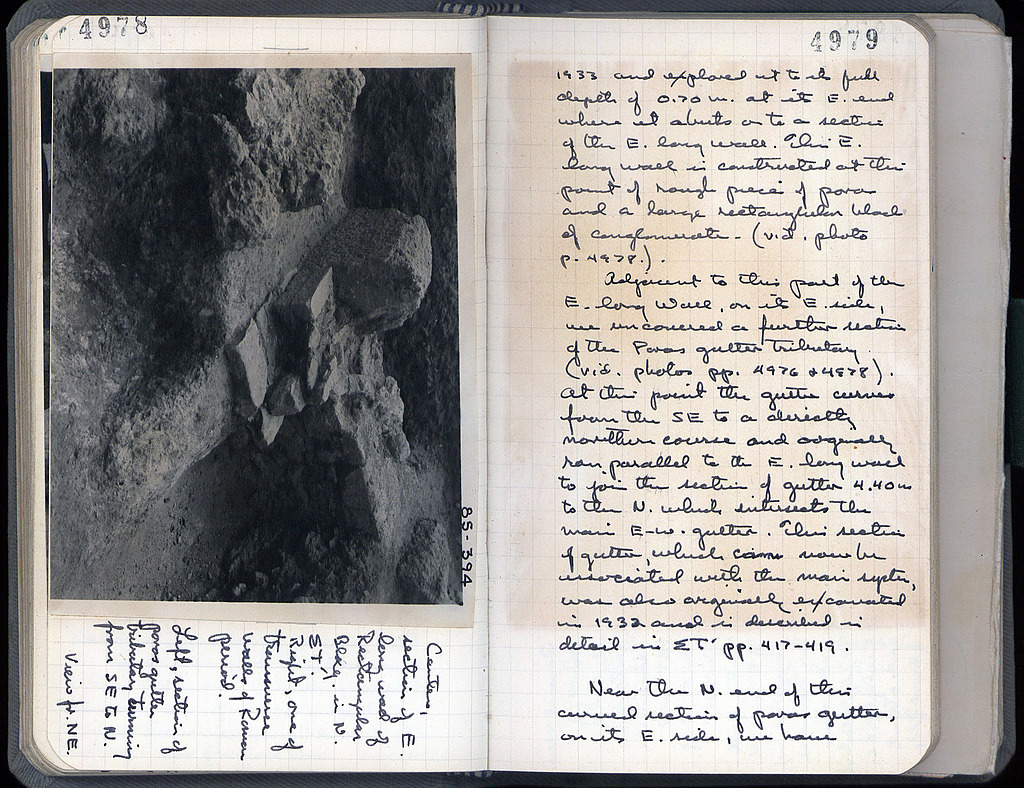 4978
85-394
Center,
section of E.
long wall of
Rectangular
Bldg. in N.
ΣΤ.
Right, one of
transverse
walls of Roman
period.
Left, section of
poros gutter
tributary turning
from SE to N.
View fr. NE.
4979
1933 and explored it to its full
depth of 0.70 m. at its E. end
where it abuts on to a section
of the E. long wall. This E.
long wall is constructed at this
point of rough pieces of poros
and a large rectangular block
of conglomerate. (vid. photo
p. 4978.).
Adjacent to this part of the
E. long wall, on its E. side,
we uncovered a further section
of the Poros gutter tributary.
(vid. photos pp. 4976 & 4978).
At this point the gutter curves
from the SE to a directly
northern course and originally
ran parallel to the E. long wall
to join the section of gutter 4.40 m
to the N. which intersects the
main E-W. gutter. This section
of gutter, which can now be
associated with the main system,
was also originally excavated
in 1932 and is described in
detail in ΣΤ' pp. 417-419.
Near the N. end of this
curved section of poros gutter,
on its E. side, we have